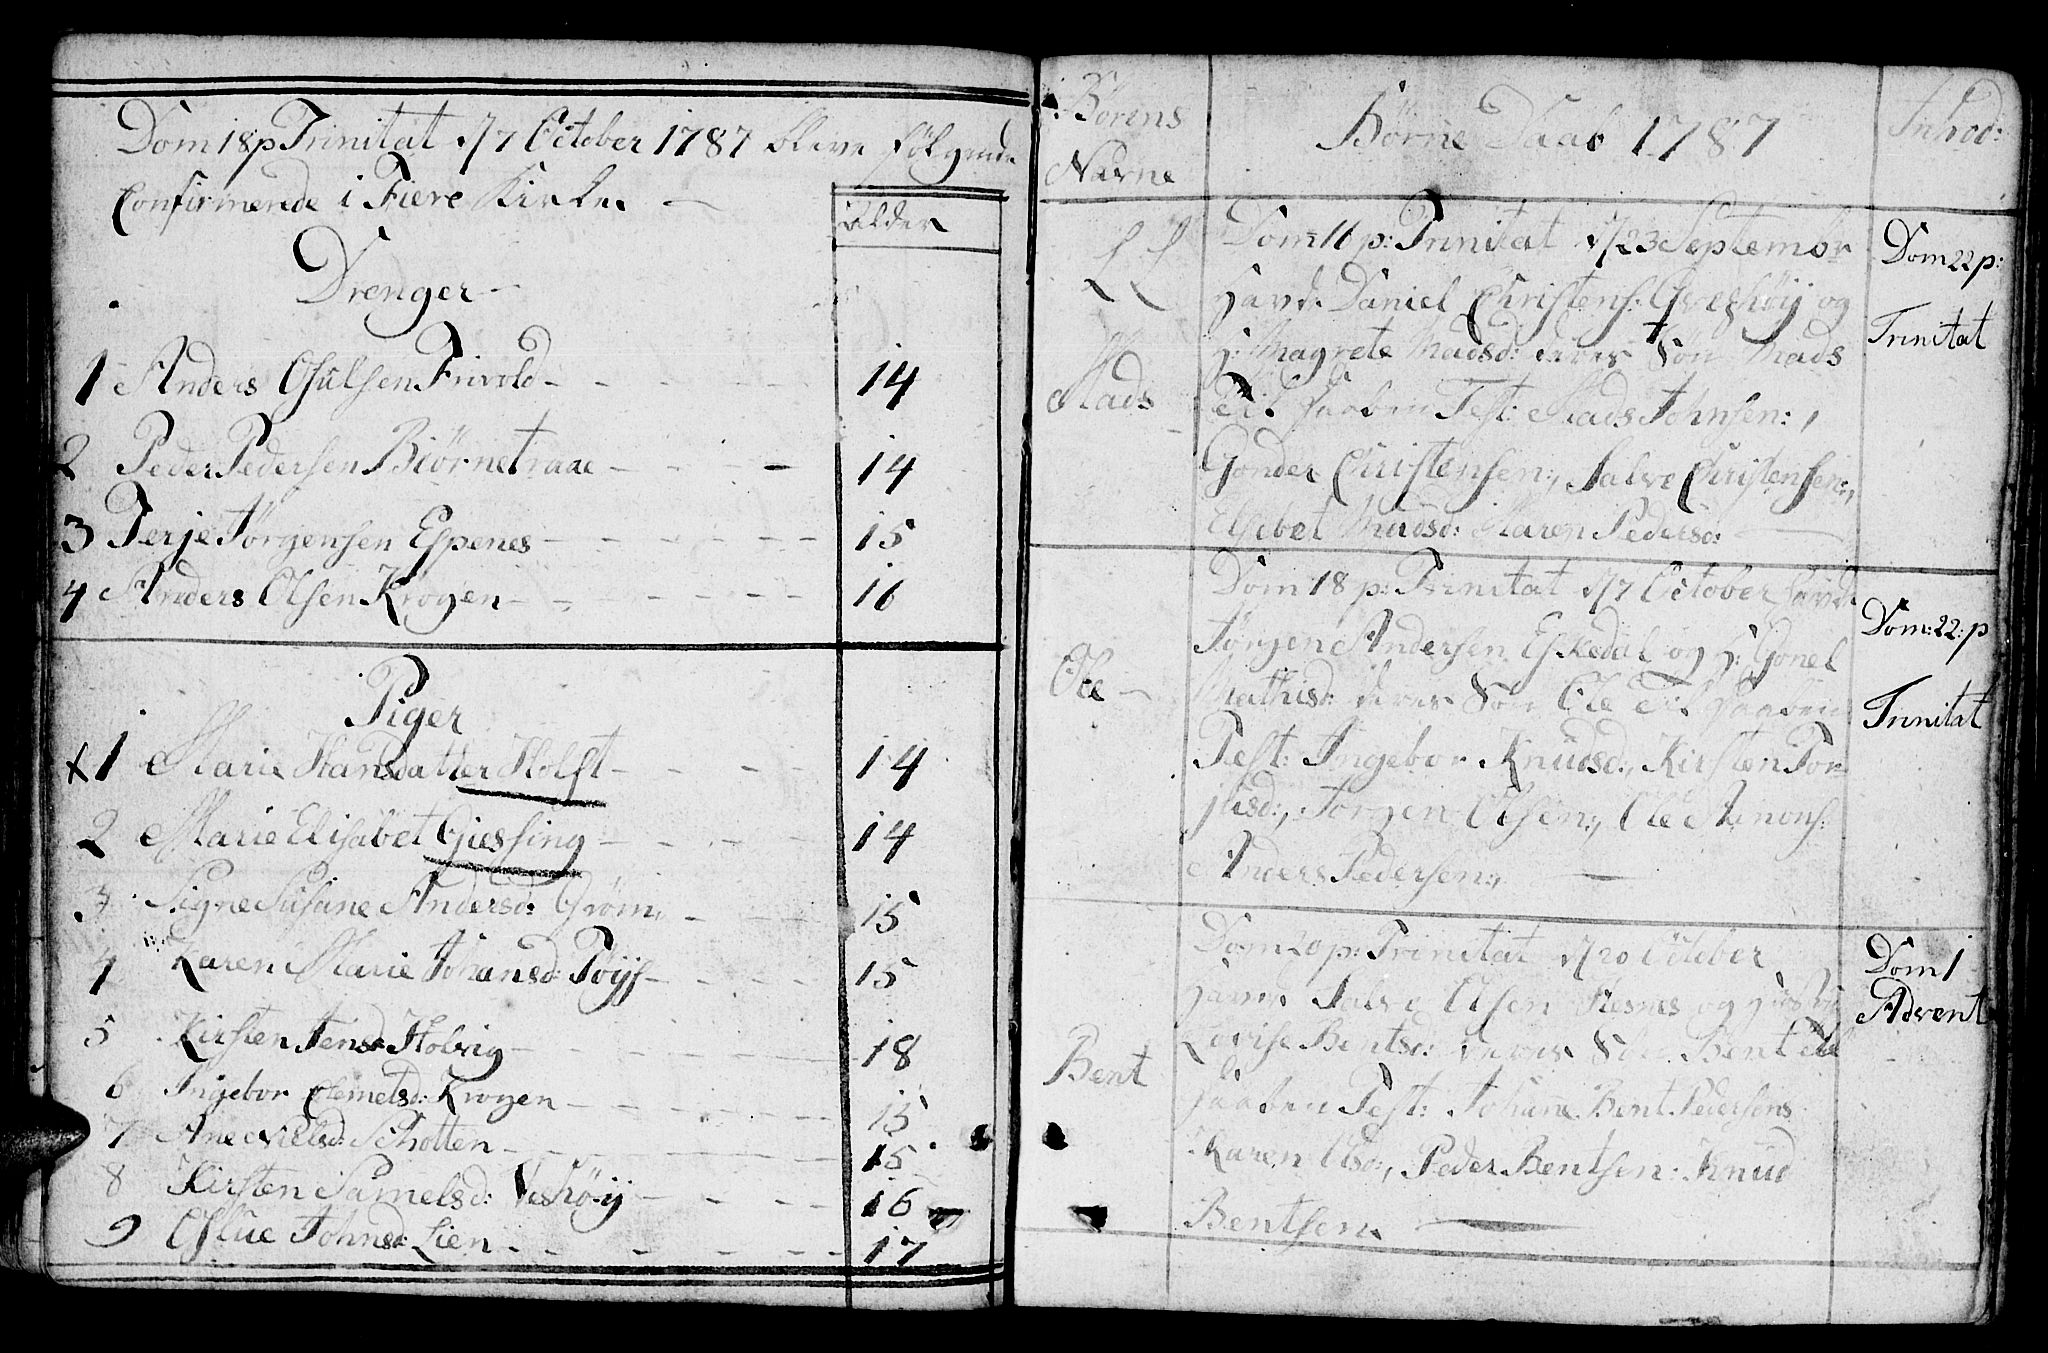 Dom 18 p Trinitat d/7 October 1787 bleve følgende
Confirmerede i Fiere Kirke
Alder
Drenger
1 Anders Osulsen Frivold 14
2 Peder Pedersen Biørnetraae 14
3 Terje Jørgensen Espenes 15
4 Anders Olsen Krogen 16
Piger
x 1 Marie Hansdatter Holst 14
2 Marie Elisabet Giessing 14
3 Signe Susane Andersd: Grøm 15
4 Karen Marie Johansd: Tøijs 15
5 Kirsten Jensd: Holvig 18
6 Ingebor Clemetsd: Krogen 15
7 Ane Nielsd: Schotten 15
8 Kirsten Samelsd: Veshøij 16
9 Aslue Johnsd: Lien 17
Børens
Navne
Børne Daab 1787
Introd:
Dom 16 p: Trinitat d/23 Septembr
havde Daniel Christens: Greshøij og
h: Magrete Madsd: deres Søn Mads
til Daaben Test: Mads Johnsen:,
Gonder Christensen:, Salve Christensen:,
Elsebet Madsd: Maren Pedersd:
Mads
Dom 22 p:
Trinitat
Dom 18 p: Trinitat d/7 October havde
Jørgen Andersen Eskedal og h: Gonel
Mathisd: deres Søn Ole til Daaben
Test: Ingebor Knudsd:, Kirsten Tor-
jusd:, Jørgen Olsen:, Ole Amons:
Anders Pedersen:,
Ole
Dom: 22: p
Trinitat
Dom 20 p: Trinitat d/20 October
havde Salve Olsen Hesnes og hustru
Lovise Bentsd: deres Søn Bent til
Daaben Test: Johane Bent Pedersens
Karen Olsd:, Peder Bentsen: Knud
Bentsen
Bent
Dom 1
Advent